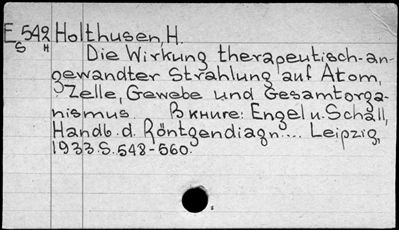 E 542 Holthusen, H.
S H Die Wirkung therapeutisch-an-
gewandter Strahlung auf Atom,
Zelle, Gewebe und Gesamtorga-
nismus. В книге: Engel u. Schall,
Handb. d. Röntgendiagn.... Leipzig,
1933. S. 548-560.